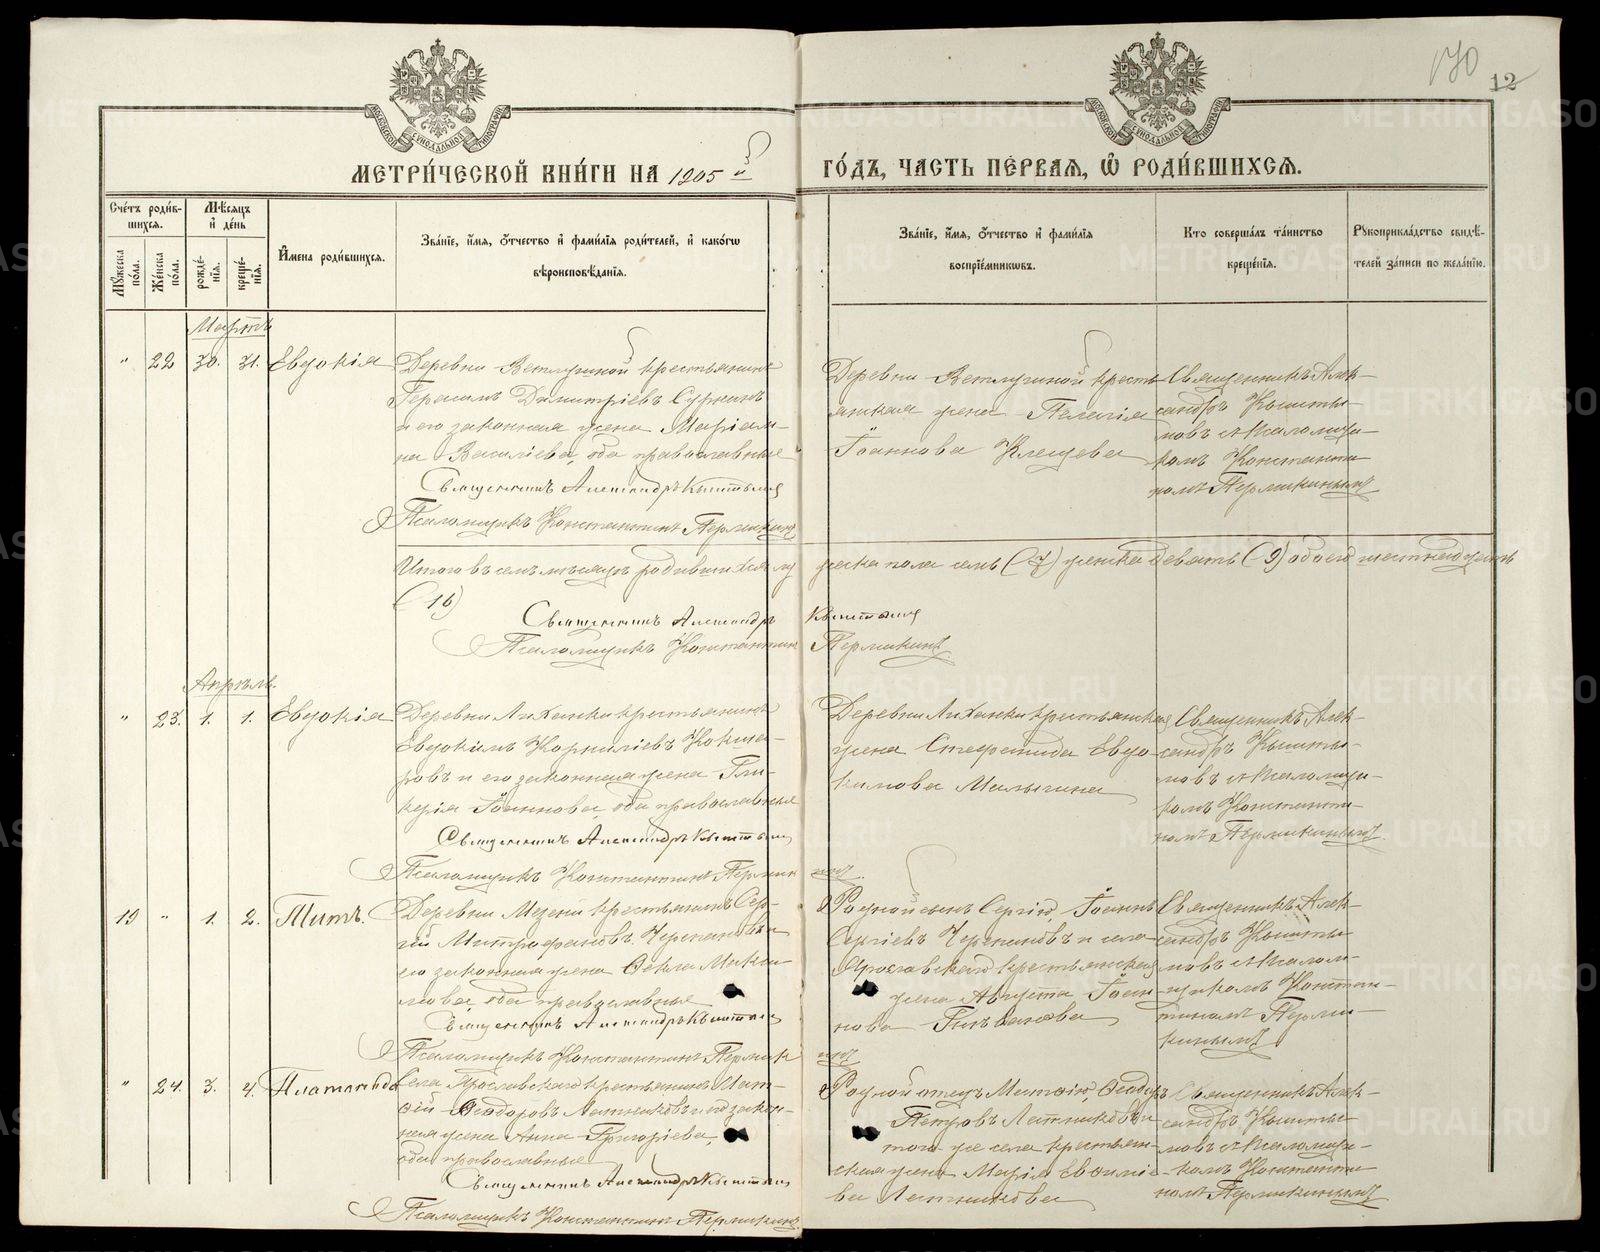 170
12
МОСКОВСКОЙ СѴНОДАЛЬНОЙ ТИПОГРАФІИ
МОСКОВСКОЙ СѴНОДАЛЬНОЙ ТИПОГРАФІИ
МЕТРИ́ЧЕСКОЙ КНИ́ГИ НА 1905 й
ГО́ДЪ, ЧАСТЬ ПЕ́РВАЯ, Ѽ РОДИ́ВШИХСЯ.
Сче́тъ роди́в-
шихся.
Мѣ́сяцъ
и҆ де́нь
Му́жеска по́ла.
Же́нска по́ла.
рожде́-
нїѧ.
креще́-
нїѧ.
И҆мена роди́вшихся.
Зва́нїе, и҆́мя, ѻ҆́тчество и҆ фами́лїя роди́телей, и҆ како́гѡ
вѣроисповѣ́данїя.
Зва́нїе, и҆́мя, ѻ҆́тчество и҆ фами́лїя
воспрїе́мникѡвъ.
Кто соверша́лъ та́инство
креще́нїя.
Рукоприкла́дство свидѣ́-
телей за́писи по жела́нїю.
Мартъ
" 22 30. 31. Евдокія
Деревни Ветлугиной крестьянинъ
Герасимъ Димитріевъ Суркинъ
и его законная жена Маріам-
на Васильева, оба православные
Священникъ Александръ Кыштымовъ
Псаломщикъ Константинъ Пермикинъ
Деревни Ветлугиной кресть-
янская жена Пелагія
Іоаннова Клещева
Священникъ Алек-
сандръ Кышты-
мовъ с Псаломщи-
комъ Константи-
номъ Пермикинымъ
Итого въ семъ мѣсяцѣ родившихся му
жеска пола семь (-7) женска девять (-9) обоего шестнадцать
(16)
Священникъ Александръ Кыштымовъ
Псаломщикъ Константинъ Пермикинъ
Апрѣль.
" 23. 1. 1. Евдокія
Деревни Лиханки крестьянинъ
Евдокимъ Корниліевъ Кокша-
ровъ и его законная жена Гли-
керія Іоаннова, оба православные
Священникъ Александръ Кыштымовъ
Псаломщикъ Константинъ Пермикинъ
Деревни Лиханки крестьянская
жена Стефанида Евдо-
кимова Малыгина
Священникъ Алек-
сандръ Кышты-
мовъ с Псаломщи-
комъ Константи-
номъ Пермикинымъ.
19 " 1. 2. Титъ.
Деревни Мезени крестьянинъ Сер-
гій Митрофановъ Черепановъ и
его законная жена Ѳекла Макси-
мова, оба православные
Священникъ Александръ Кыштымовъ
Псаломщикъ Константинъ Пермикинъ
Родной сынъ Сергію, Іоаннъ
Сергіевъ Черепановъ и села
Ярославскаго крестьянская
жена Августа Іоан-
нова
Священникъ Алек-
сандръ Кышты-
мовъ с Псалом-
щикомъ Констан-
тиномъ Перми-
кинымъ
" 24. 3. 4. Платонида
Села Ярославскаго крестьянинъ Мат-
ѳій Ѳеодоровъ Латниковъ и его закон-
ная жена Анна Григоріева,
оба православные
Священникъ Александръ Кыштымовъ
Псаломщикъ Константинъ Пермикинъ
Родной отецъ Матѳію, Ѳеодоръ
Петровъ Латниковъ и
того же села крестьян-
ская жена Марія Евфиміе-
ва Латникова
Священникъ Алек-
сандръ Кышты-
мовъ с Псаломщи-
комъ Константи-
номъ Пермикинымъ